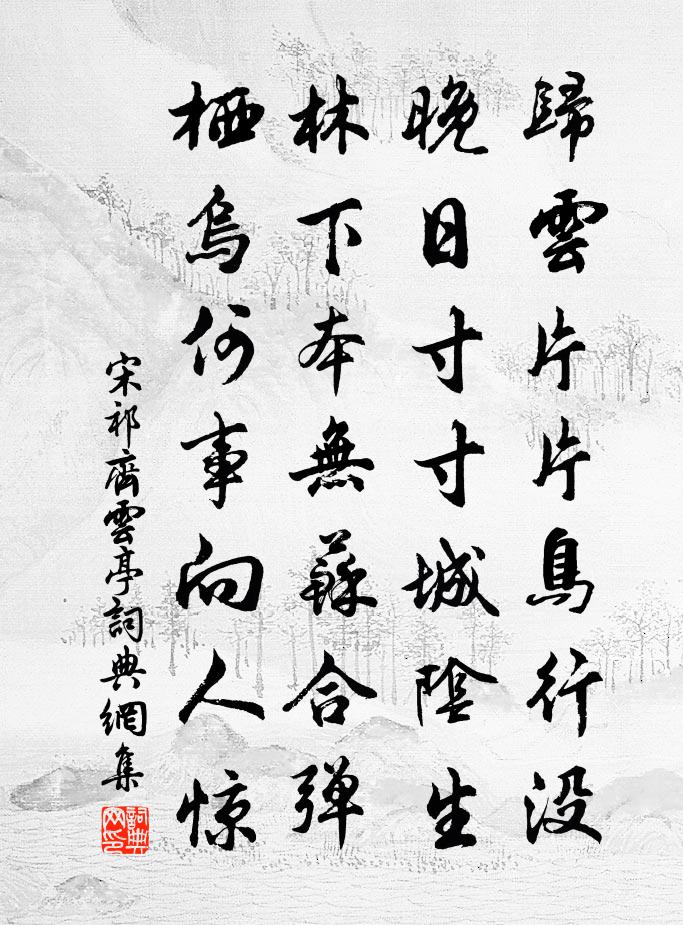 歸雲片片鳥行没
晚日寸寸城陰生
林下本無蘇合彈
栖烏何事向人惊
宋祁齊雲亭詞典網集
詞典网印